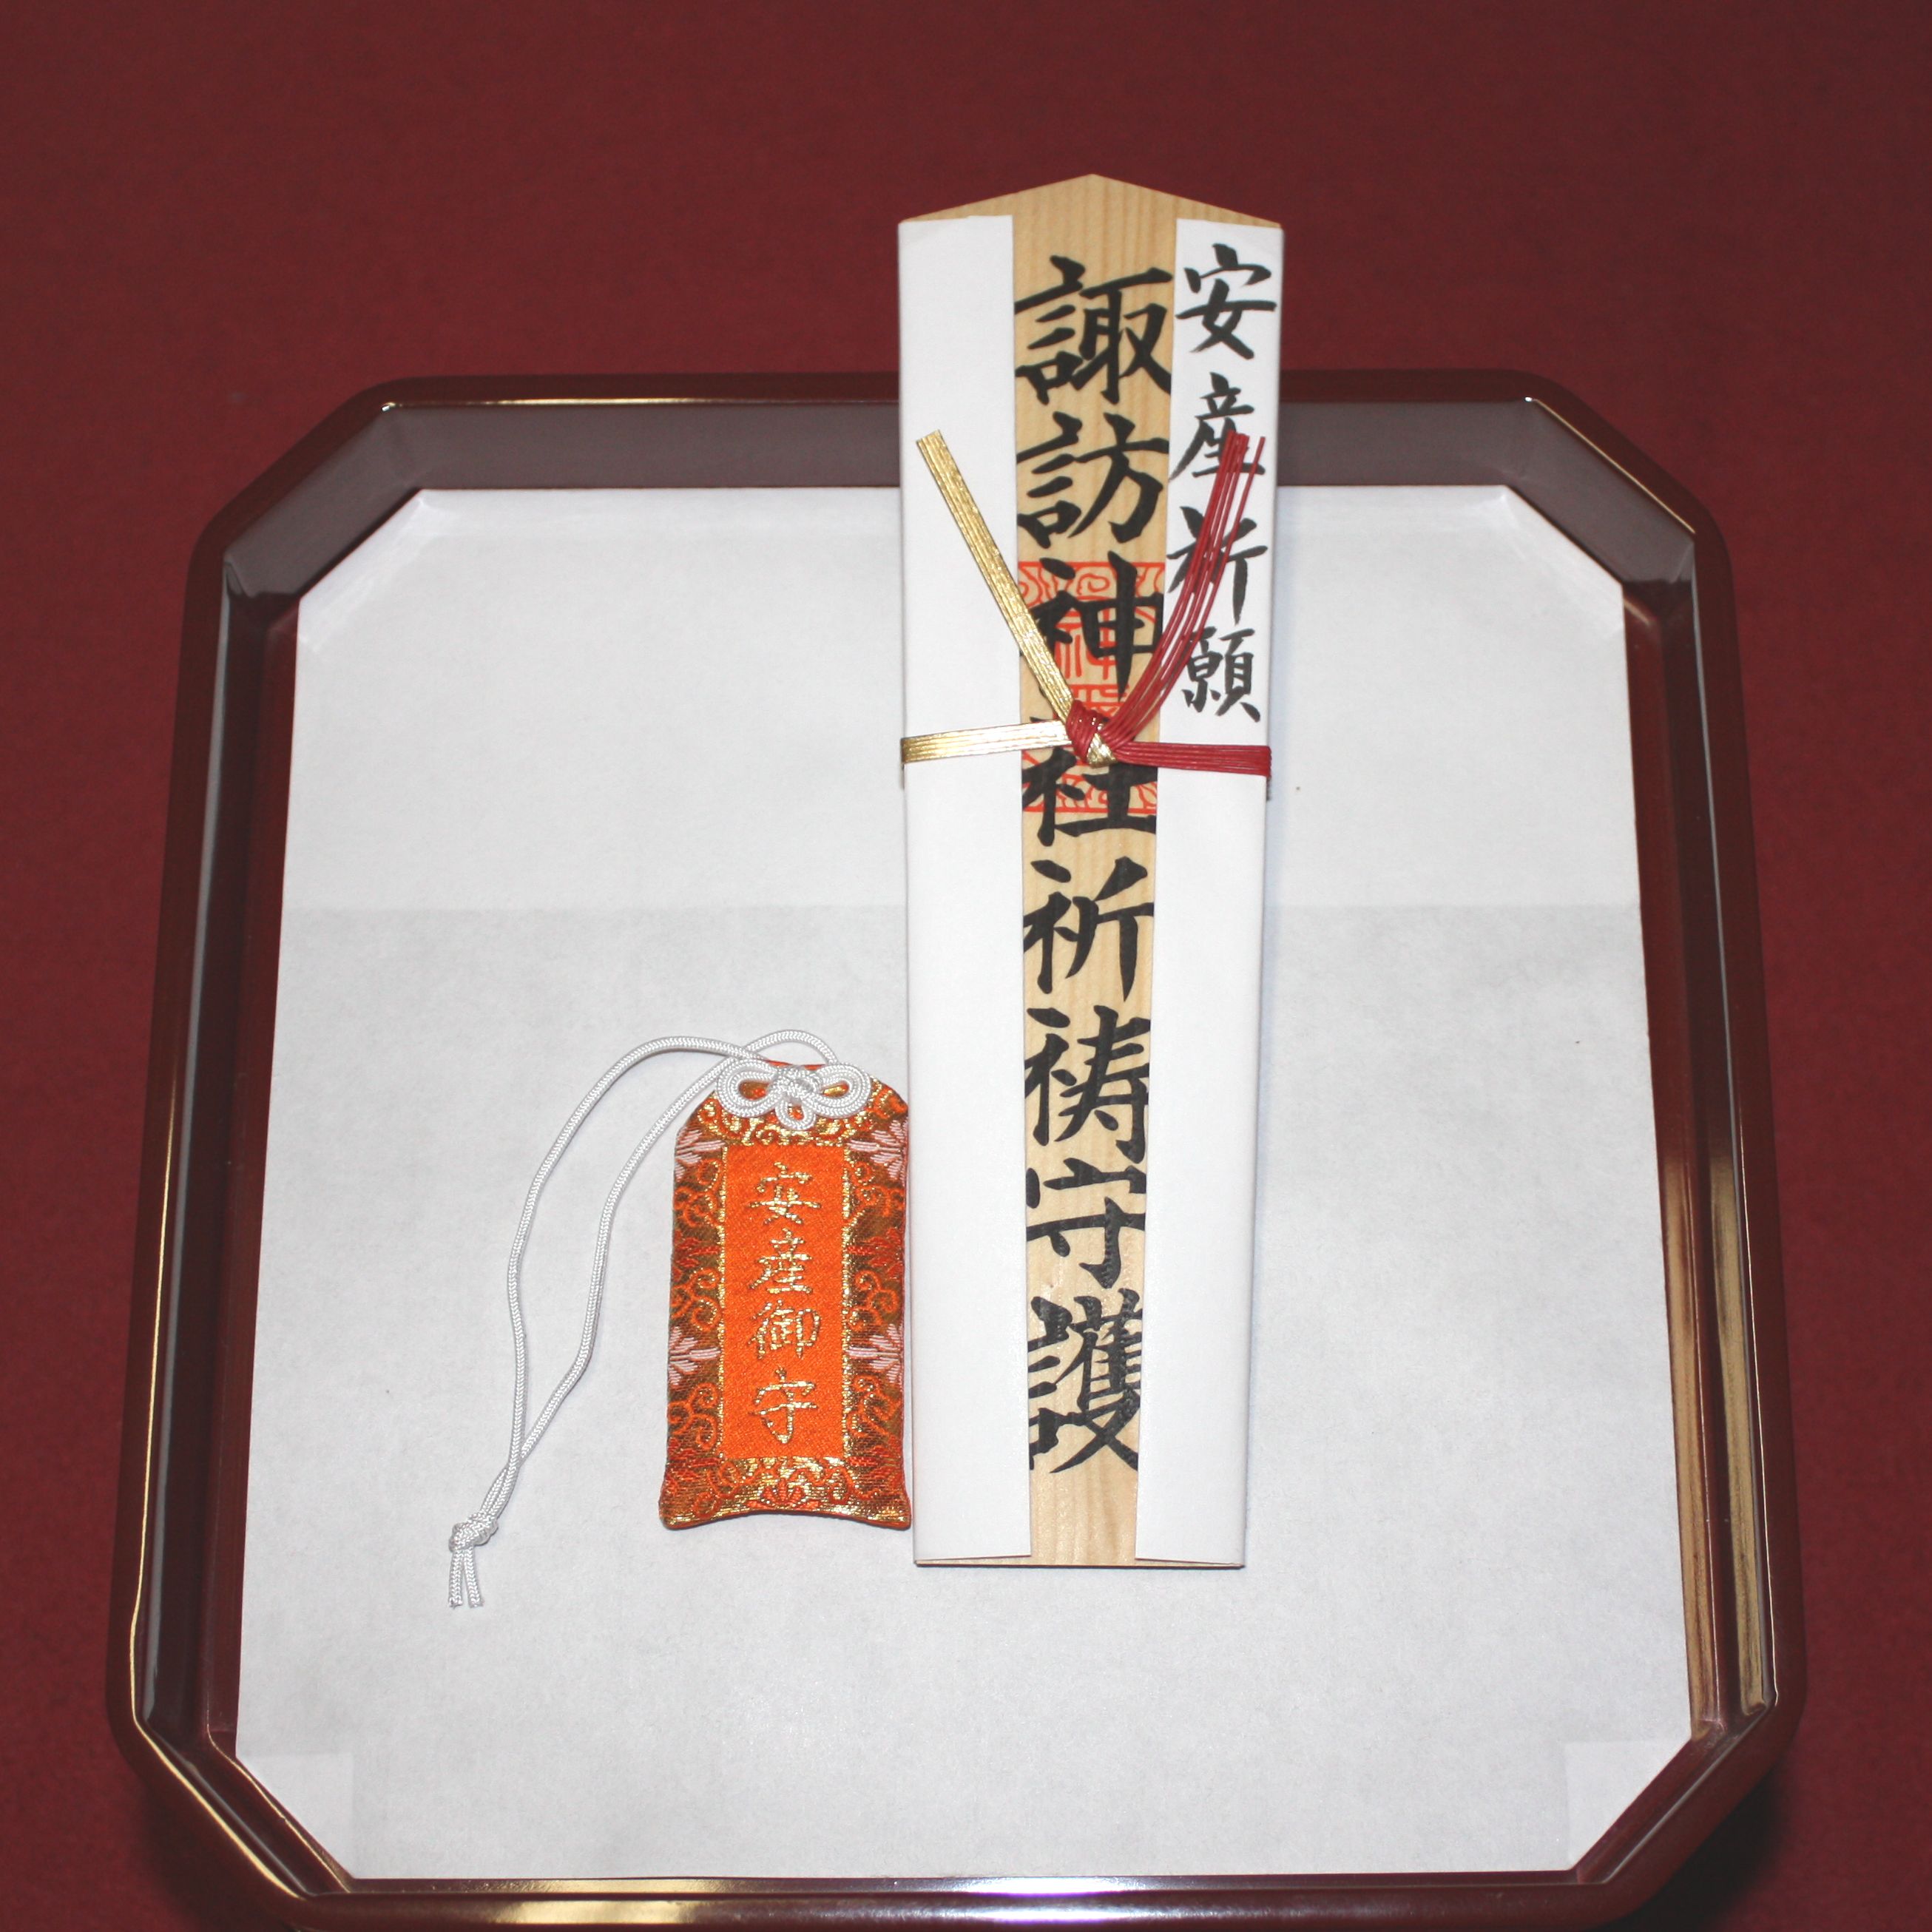 安産祈願
諏訪神社祈祷守護
安産御守